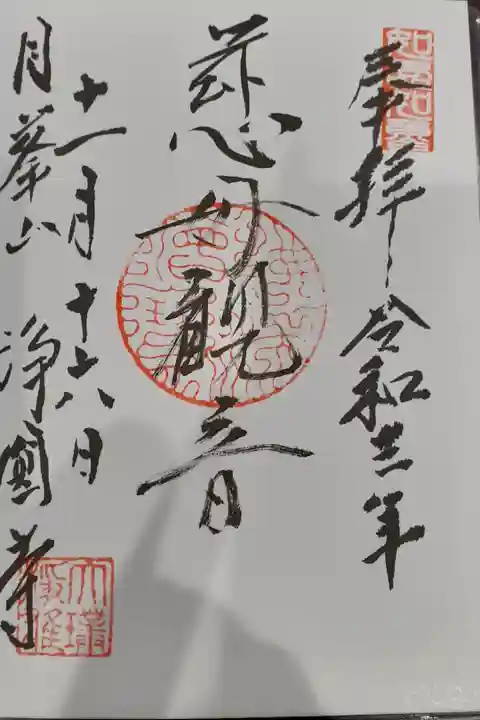 奉拝 令和三年
慈母観音
十一月十六日
月峯山 浄國寺